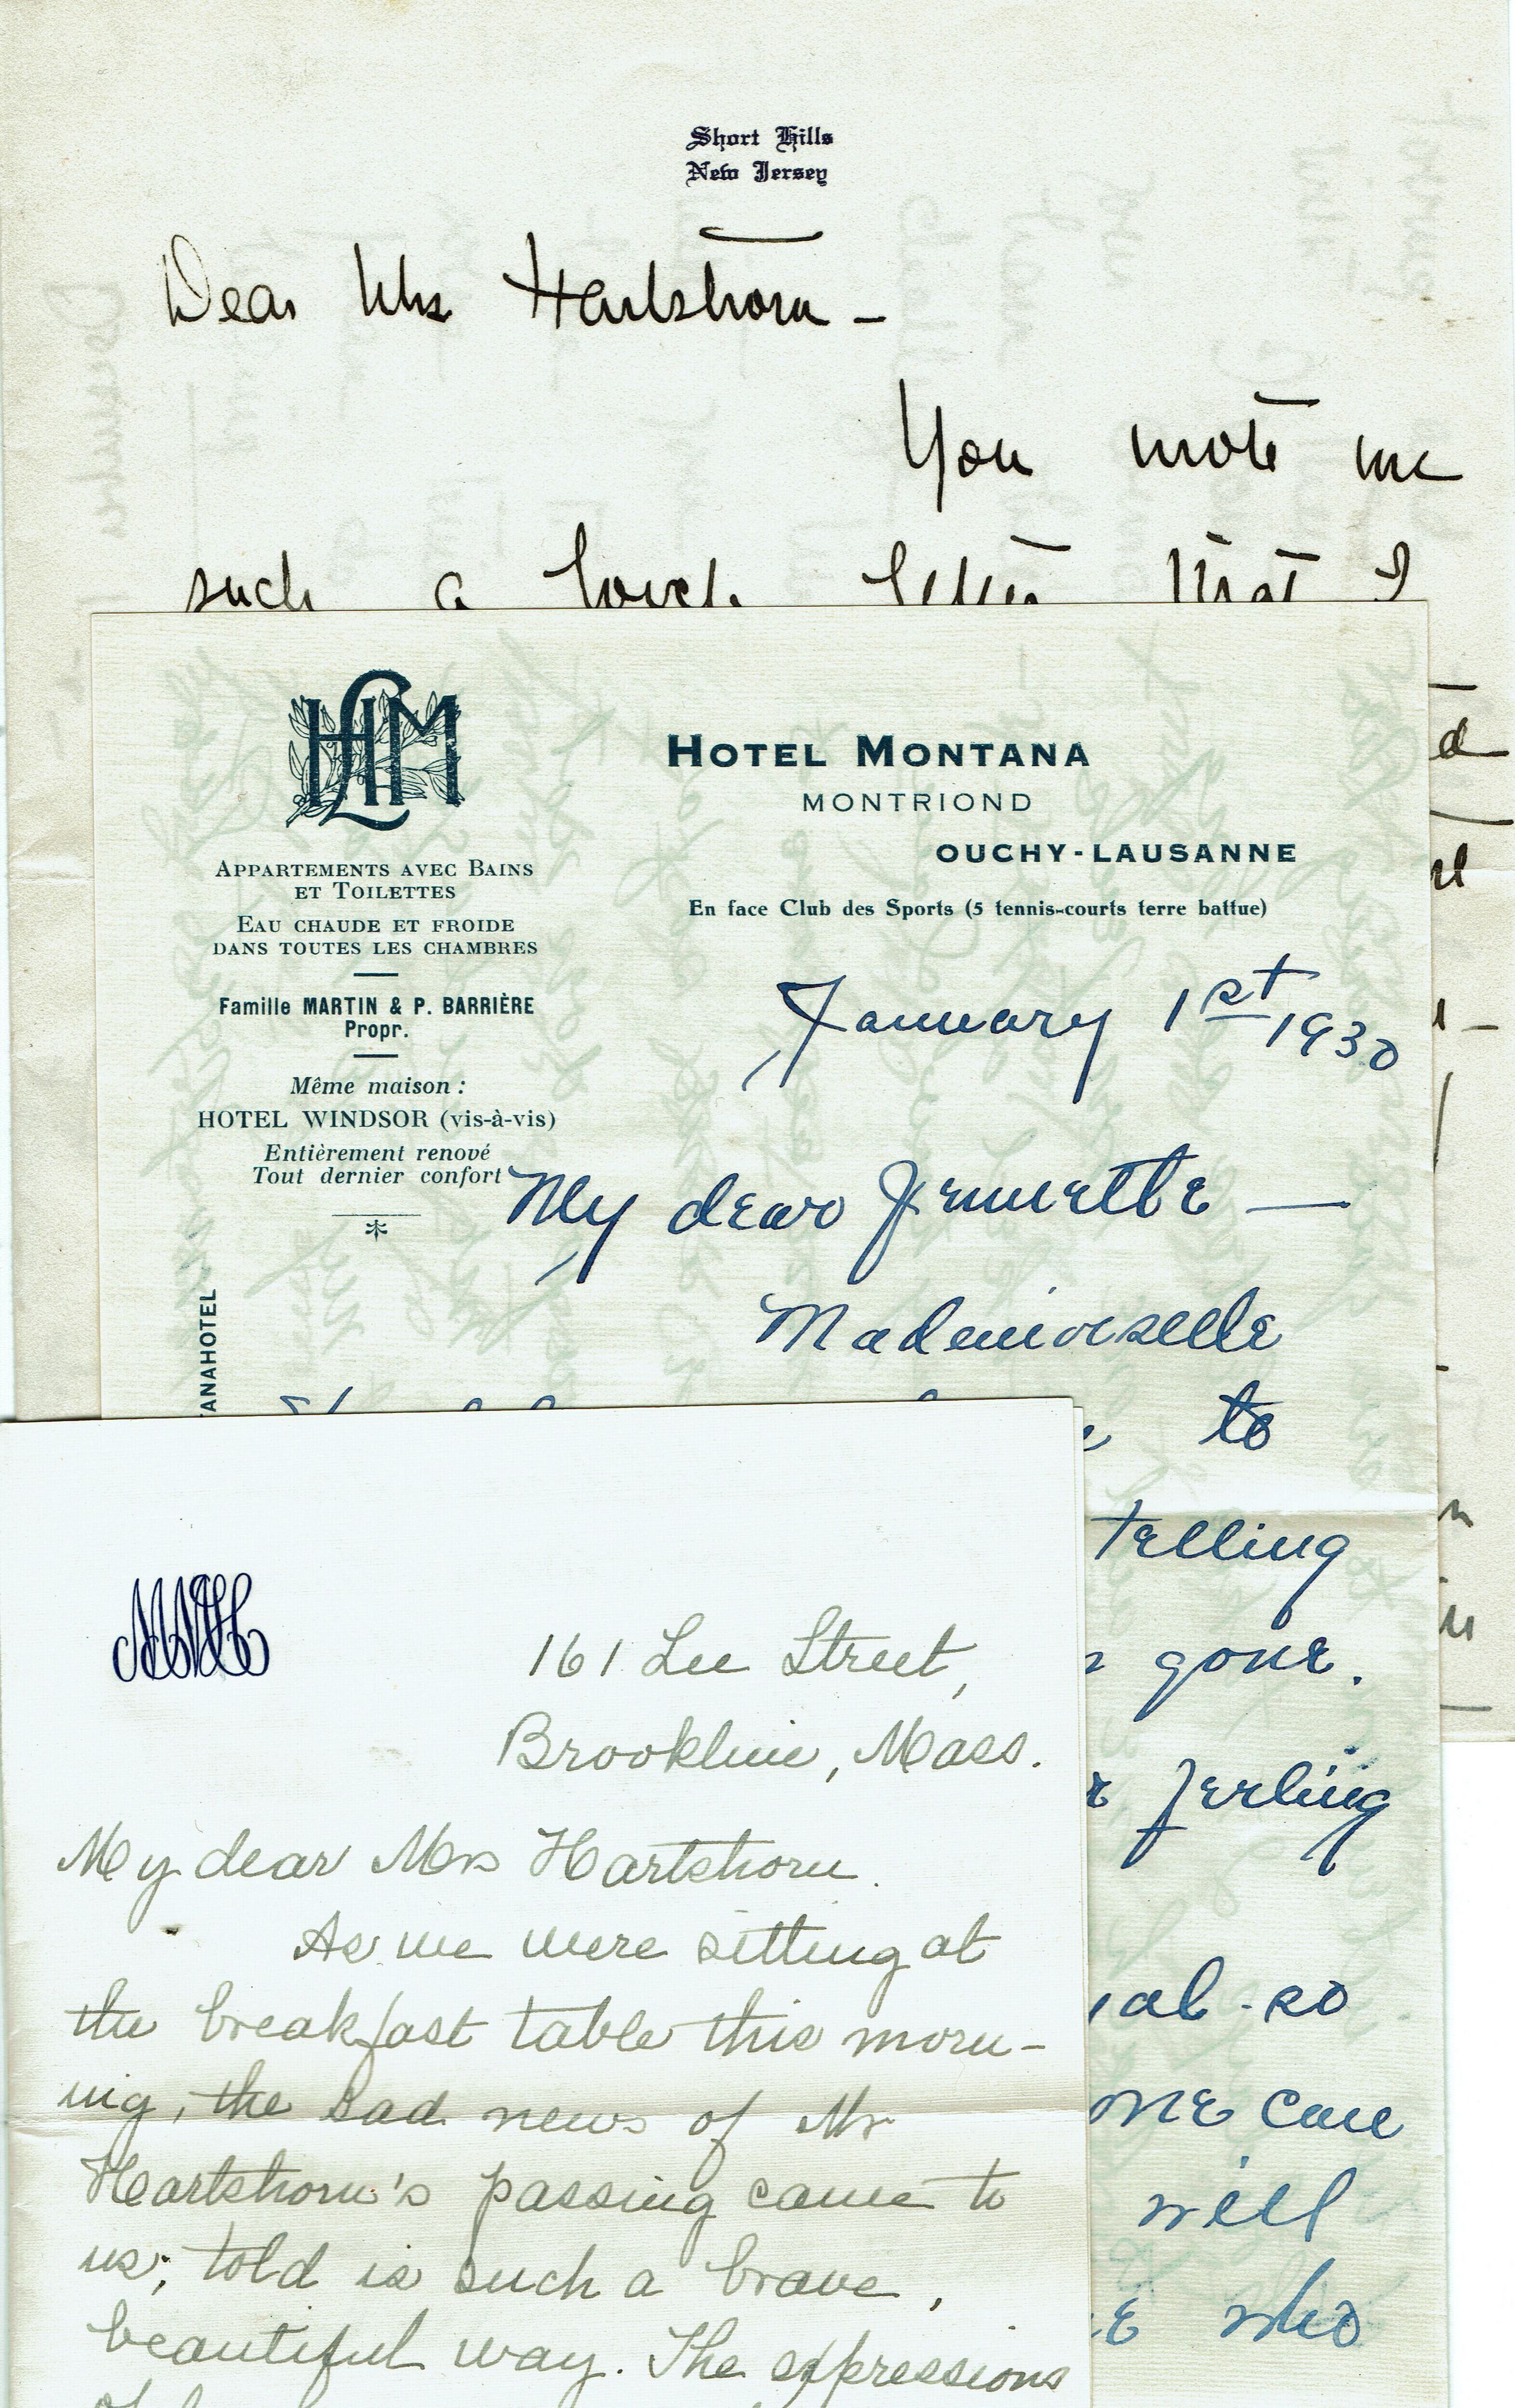 Short Hills
New Jersey
Dear Mrs Hartshorn -
You wrote me
such a lovely letter that I
HLM
HOTEL MONTANA
MONTRIOND
OUCHY-LAUSANNE
En face Club des Sports (5 tennis-courts terre battue)
APPARTEMENTS AVEC BAINS
ET TOILETTES
EAU CHAUDE ET FROIDE
DANS TOUTES LES CHAMBRES
Famille MARTIN & P. BARRIÈRE
Propr.
Même maison :
HOTEL WINDSOR (vis-à-vis)
Entièrement renové
Tout dernier confort
TANAHOTEL
January 1st 1930
My dear Jennette —
Mademoiselle
to
telling
gone.
feeling
so
can
will
who
161 Lee Street,
Brookline, Mass.
My dear Mrs Hartshorn.
As we were sitting at
the breakfast table this morn-
ing, the sad news of Mr
Hartshorn's passing came to
us; told is such a brave,
beautiful way. The expressions